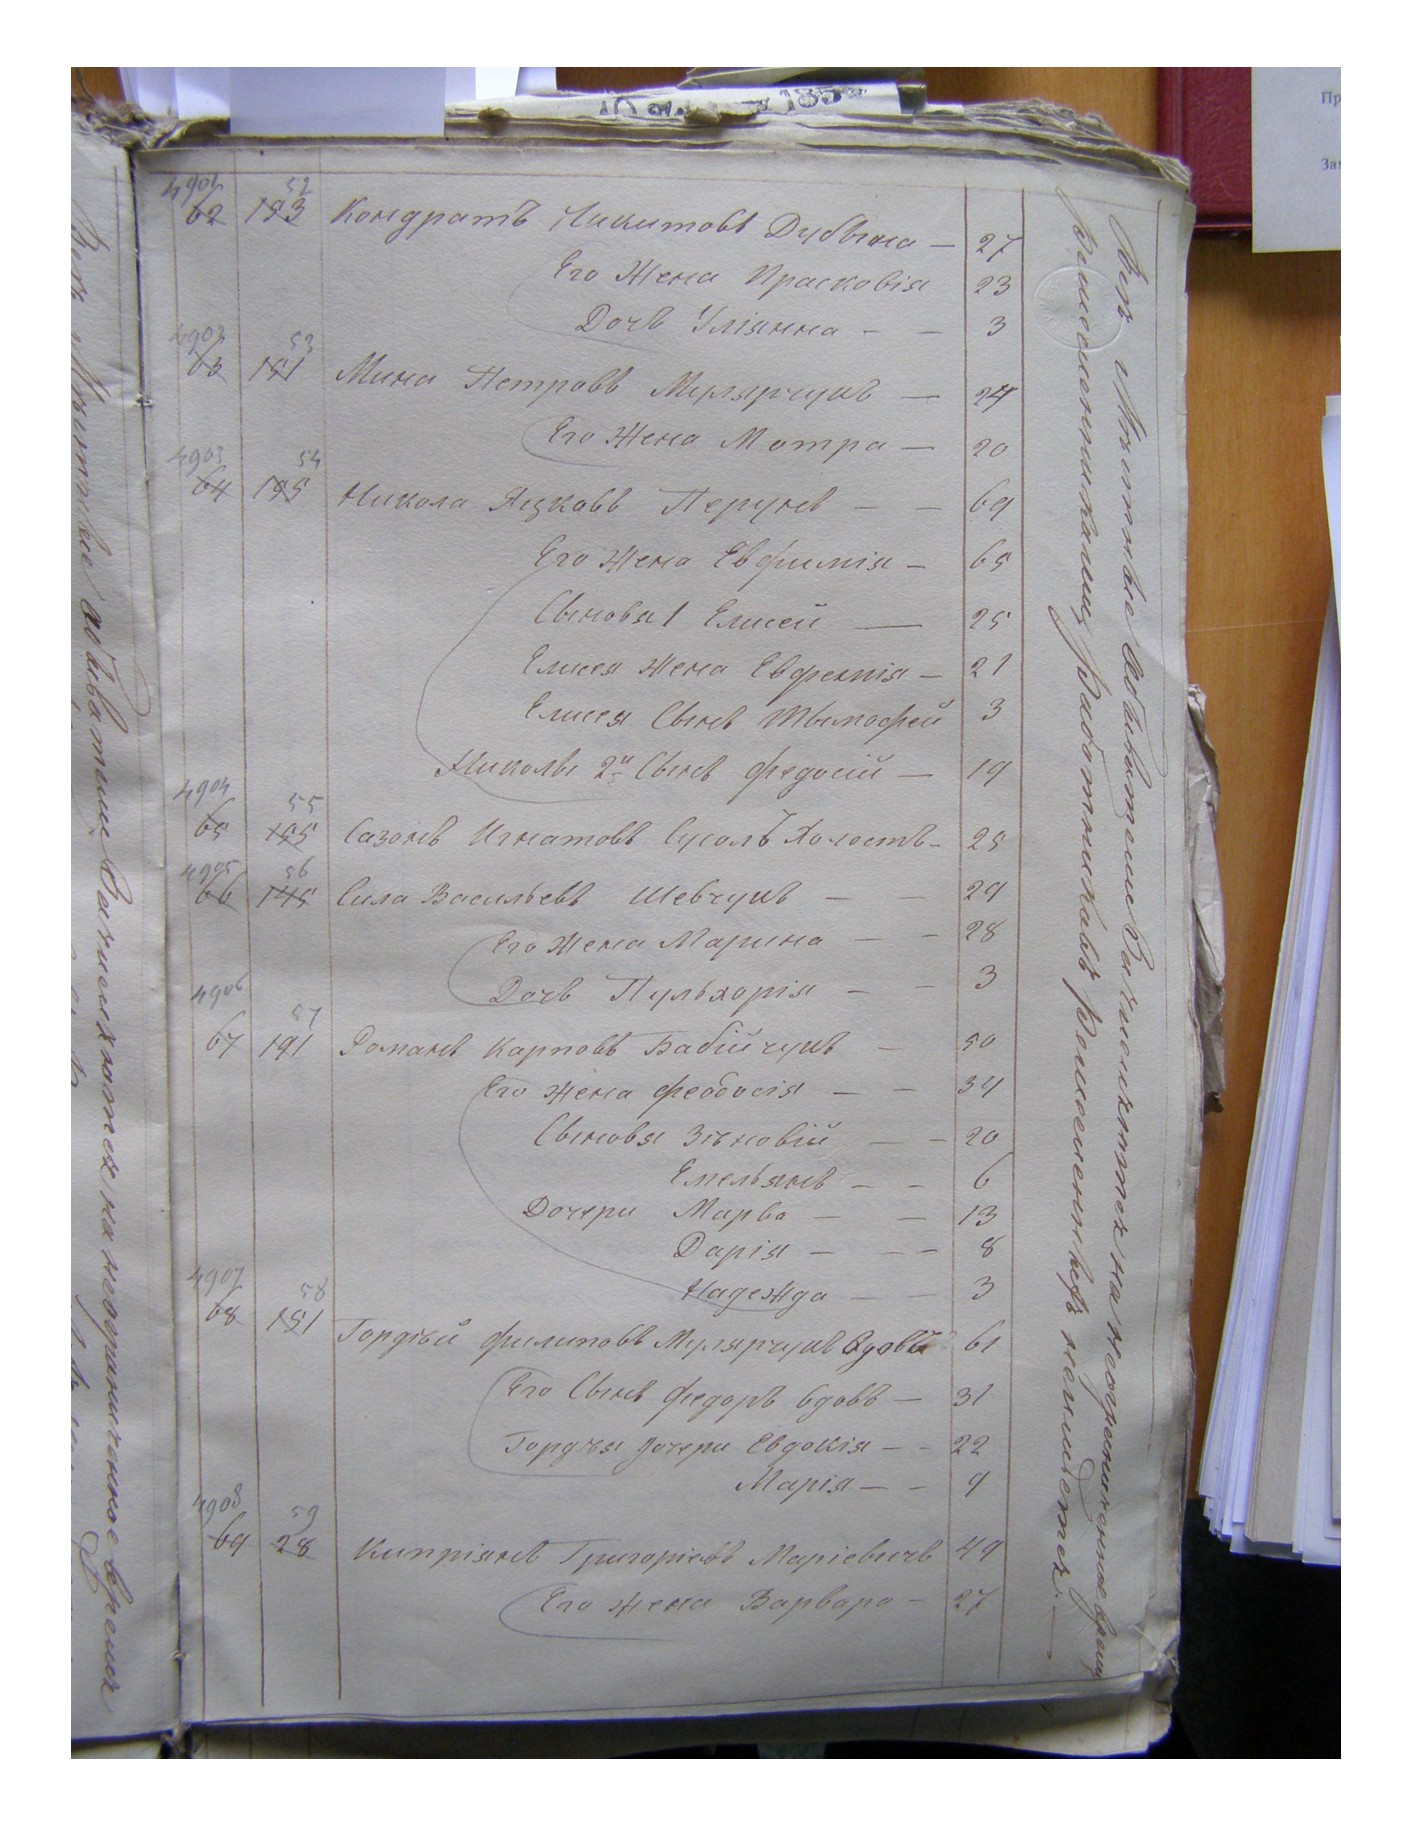 1852
Пр
Зая
4901 52
62 193 Кондратъ Никитовъ Дубына — 27
Его Жена Прасковія 23
Дочь Уліянна — — 3
4902 53
63 151 Мина Петровъ Мулярчукъ — 24
Его Жена Мотра — 20
4903 54
64 195 Никола Яцковъ Перунъ — — 69
Его Жена Евфимія — 65
Сыновья 1 Елисей — 25
Елисея Жена Евфимія — 21
Елисея Сынъ Тымофей 3
Николы 2й Сынъ Федосий — 19
4904 55
65 155 Сазонъ Игнатовъ Сусолъ Холостъ — 25
4905 56
66 145 Сила Васильевъ Шевчукъ — — 29
Его Жена Марина — — 28
Дочь Пульхорія — — 3
4906 57
67 191 Романъ Карповъ Бабійчукъ — 50
Его Жена Феодосія — — 34
Сыновья Зѣновій — — 20
Емельянъ — — 6
Дочери Марва — — 13
Дарія — — — 8
Надежда — — 3
4907 58
68 151 Гордѣй Филиповъ Мулярчукъ Вдовъ 61
Его Сынъ Федоръ вдовъ — 31
Гордѣя дочери Евдокія — — 22
Марія — — 9
4908 59
69 28 Кипріянъ Григоріевъ Маріевичъ 49
Его Жена Варвара — 27
Мѣстные Обыватели Зачисляются на неограниченное время